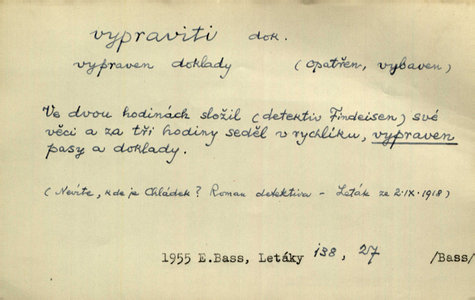 vypraviti dok.
vypraven doklady (opatřen, vybaven)
Ve dvou hodinách složil (detektiv Findeisen) své
věci a za tři hodiny seděl v rychlíku, vypraven
pasy a doklady.
(Nevíte, kde je Chládek? Roman detektiva - Leták ze 2.IX.1918)
1955 E.Bass, Letáky 138, 27 /Bass/